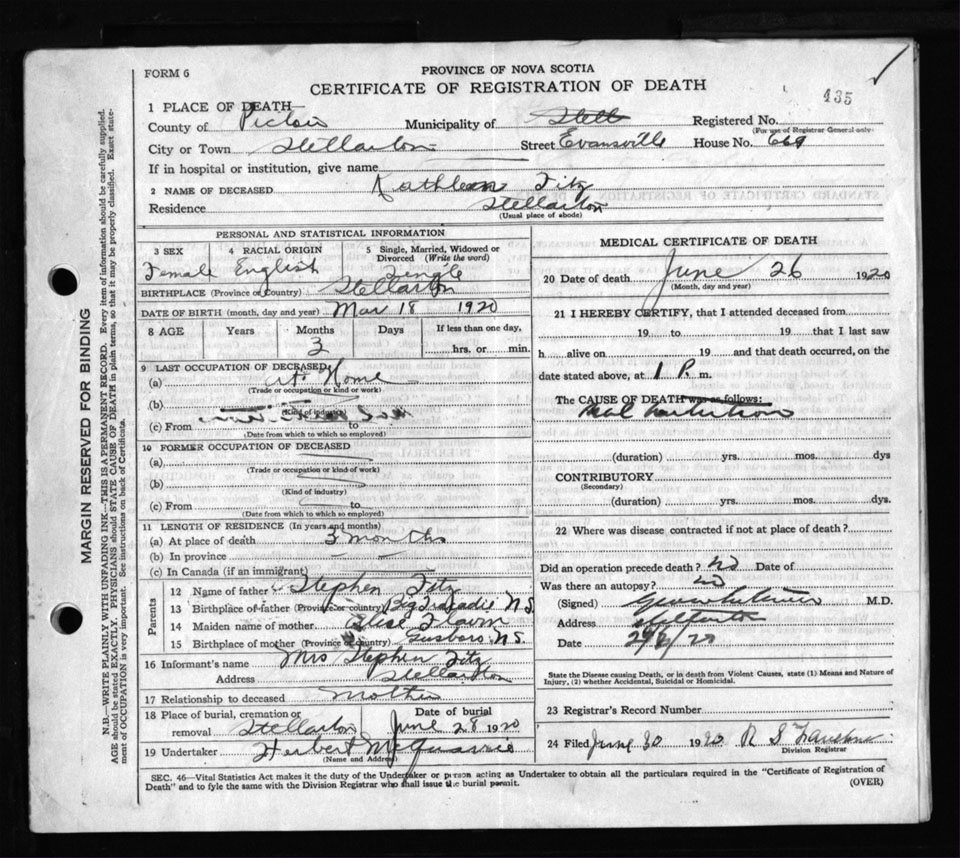 FORM 6
PROVINCE OF NOVA SCOTIA
CERTIFICATE OF REGISTRATION OF DEATH
435
1 PLACE OF DEATH—
County of Pictou Municipality of Stell Registered No.
(For use of Registrar General only)
City or Town Stellarton Street Evansville House No. 669
If in hospital or institution, give name
2 NAME OF DECEASED Kathleen Fitz
Residence Stellarton
(Usual place of abode)
PERSONAL AND STATISTICAL INFORMATION
3 SEX 4 RACIAL ORIGIN 5 Single, Married, Widowed or Divorced (Write the word)
Female English Single
BIRTHPLACE (Province or Country) Stellarton
DATE OF BIRTH (month, day and year) Mar 18 1920
8 AGE Years Months Days If less than one day,
3 hrs. or min.
9 LAST OCCUPATION OF DECEASED
(a) At Home
(Trade or occupation or kind of work)
(b)
(Kind of industry)
(c) From to
(Date from which to which so employed)
10 FORMER OCCUPATION OF DECEASED
(a)
(Trade or occupation or kind of work)
(b)
(Kind of industry)
(c) From to
(Date from which to which so employed)
11 LENGTH OF RESIDENCE (In years and months)
(a) At place of death 3 months
(b) In province
(c) In Canada (if an immigrant)
Parents
12 Name of father Stephen Fitz
13 Birthplace of father (Province or country) Big Tracadie N.S.
14 Maiden name of mother Flavin
15 Birthplace of mother (Province or country) Guysboro N.S.
16 Informant's name Mrs Stephen Fitz
Address Stellarton
17 Relationship to deceased Mother
18 Place of burial, cremation or removal Stellarton Date of burial June 28 1920
19 Undertaker Herbert
(Name and Address)
MEDICAL CERTIFICATE OF DEATH
20 Date of death June 26 1920
(Month, day and year)
21 I HEREBY CERTIFY, that I attended deceased from
19 to 19 that I last saw
h alive on 19 and that death occurred, on the
date stated above, at 1 P. m.
The CAUSE OF DEATH was as follows:
Mal nutrition
(duration) yrs. mos. dys
CONTRIBUTORY
(Secondary)
(duration) yrs. mos. dys.
22 Where was disease contracted if not at place of death?
Did an operation precede death? no Date of
Was there an autopsy? no
(Signed) M.D.
Address Stellarton
Date
State the Disease causing Death, or in death from Violent Causes, state (1) Means and Nature of
Injury, (2) whether Accidental, Suicidal or Homicidal.
23 Registrar's Record Number
24 Filed June 30 1920 R S
Division Registrar
SEC. 46—Vital Statistics Act makes it the duty of the Undertaker or person acting as Undertaker to obtain all the particulars required in the "Certificate of Registration of
Death" and to fyle the same with the Division Registrar who shall issue the burial permit.
(OVER)
MARGIN RESERVED FOR BINDING
N.B.—WRITE PLAINLY WITH UNFADING INK—THIS IS A PERMANENT RECORD. Every item of information should be carefully supplied.
AGE should be stated EXACTLY. PHYSICIANS should STATE CAUSE OF DEATH in plain terms, so that it may be properly classified. Exact state-
ment of OCCUPATION is very important. See instructions on back of Certificate.